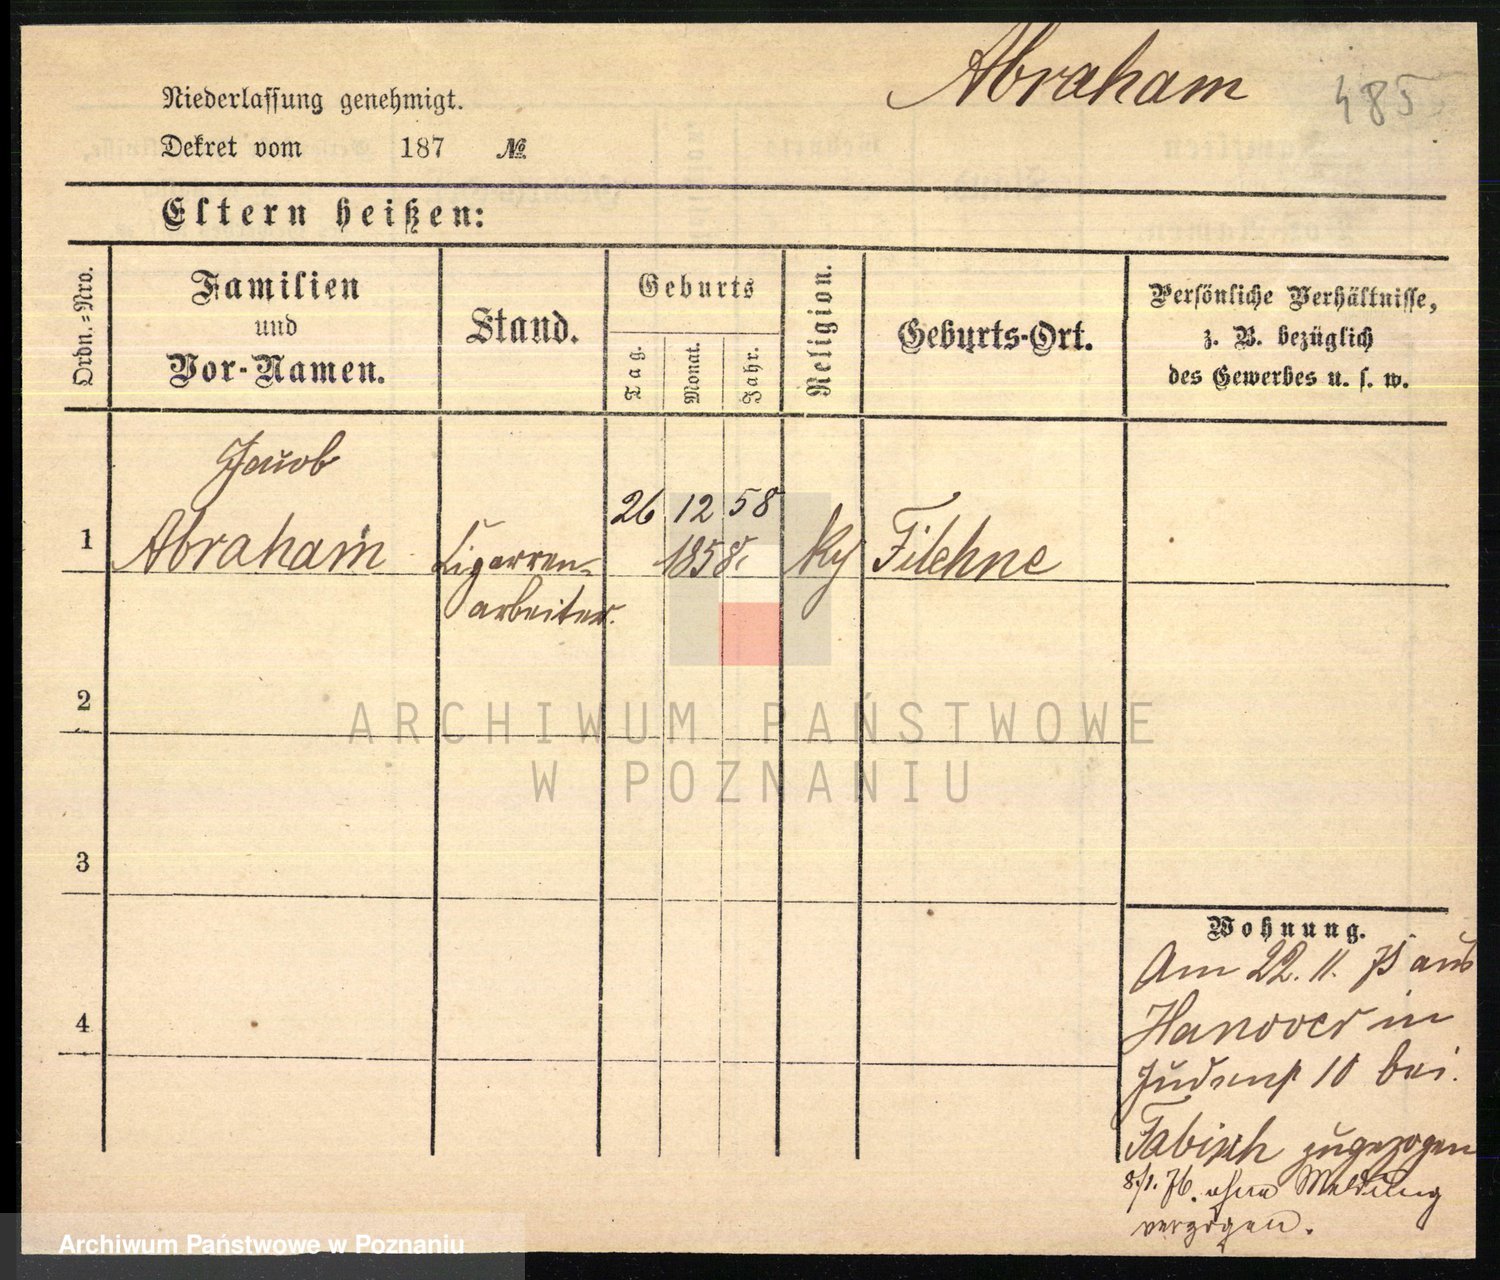 Abraham
485
Niederlassung genehmigt.
Dekret vom 187 №
Eltern heißen:
Ordn.=Nro.
Familien
und
Vor-Namen.
Stand.
Geburts
Tag.
Monat.
Jahr.
Religion.
Geburts-Ort.
Persönliche Verhältnisse,
z. B. bezüglich
des Gewerbes u. s. w.
Jacob
1 Abraham
Cigarren-
arbeiter.
26 12 58
1858.
Filehne
2
3
4
Wohnung.
Am 22. 11. 75 aus
Hanover in
Judenst 10 bei
Fabisch zugezogen
8/1. 76. ohne Meldung
verzogen.
ARCHIWUM PAŃSTWOWE
W POZNANIU
Archiwum Państwowe w Poznaniu